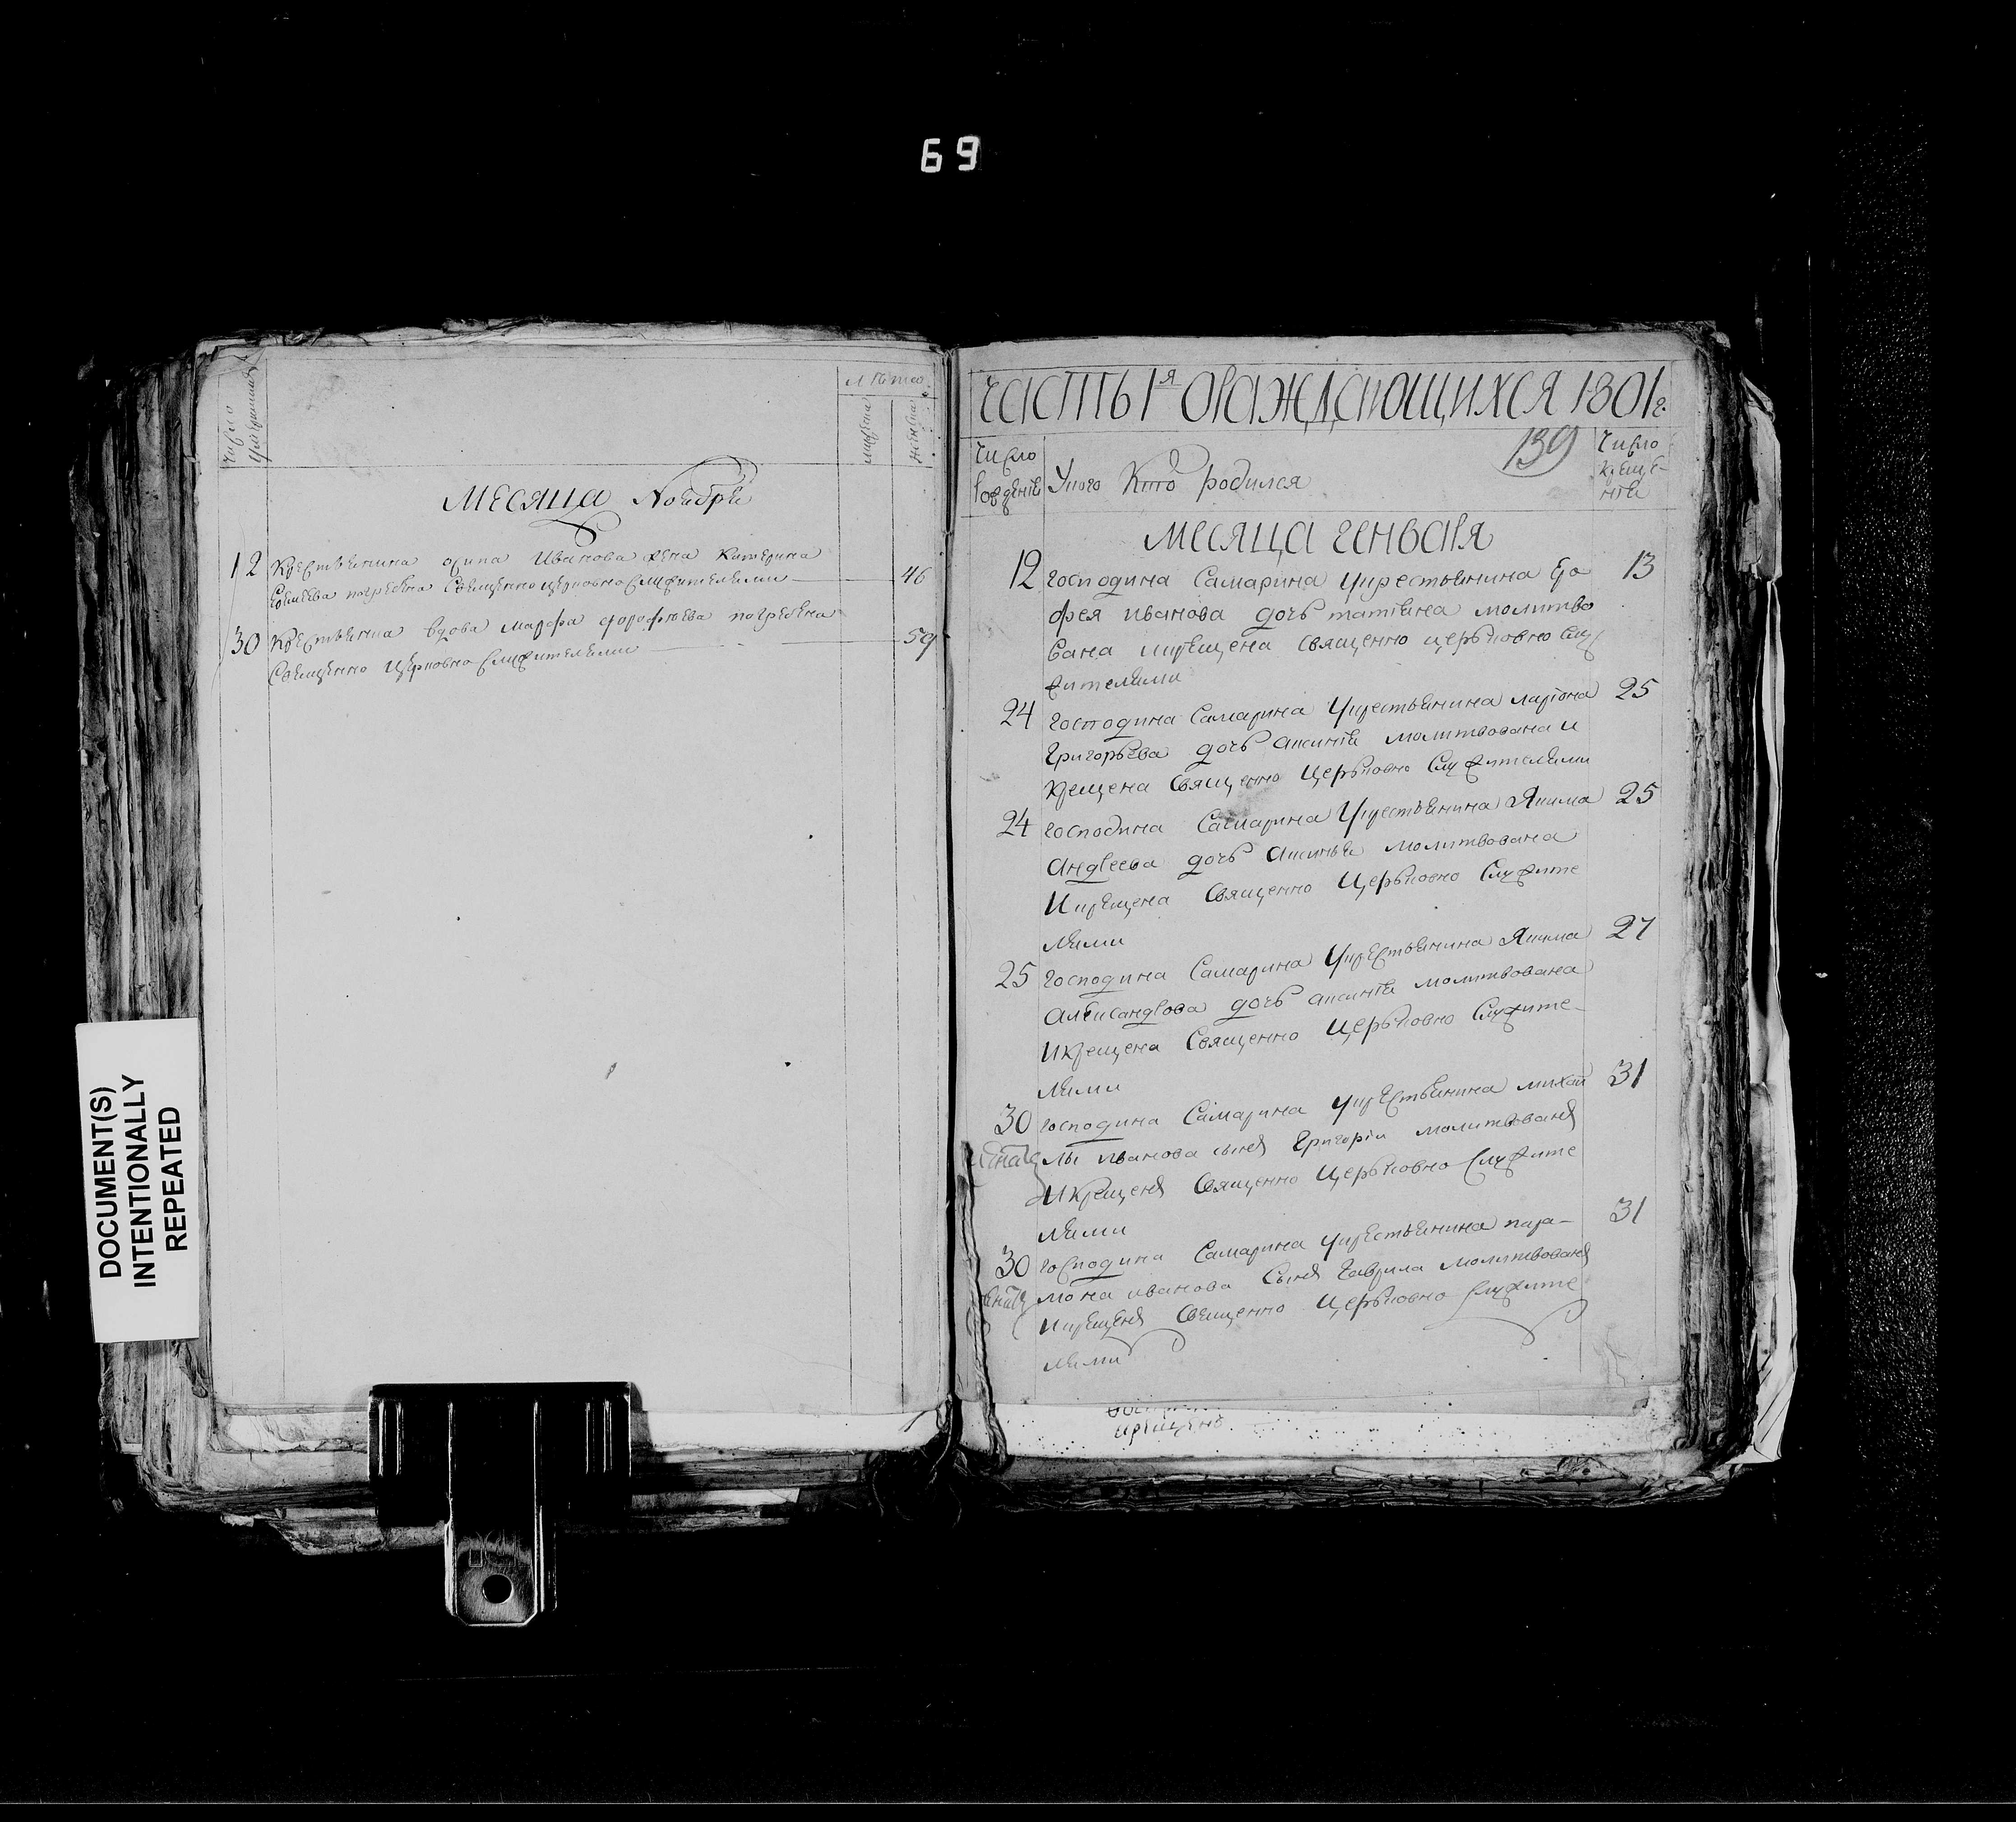 69
Число
Умершихъ
Лѣта
мужеска
женска
Месяца Ноября
12 Крестьянина осипа Иванова жена Катерина 46
погребена Священно церковно служителями
30 Крестьянина вдова марфа дорофеева погребена 59
Священно Церковно служителями
ЧАСТЬ 1я О РАЖДАЮЩИХСЯ 1801 г.
139
Число рожденiя
У кого Кто родился
Число креще-
нiя
МЕСЯЦА ГЕНВАРЯ
12 господина Самарина укрестьянина еро 13
фея иванова дочь татiяна молитво
вана икрещена священно церьковно слу
жителями
24 господина Самарина укрестьянина ларiона 25
Григорьева дочь аксинiя молитвована и
крещена Священно Церьковно Служителями
24 господина Самарина Укрестьянина Якима 25
андреева дочь аксинья молитвована
Икрещена Священно Церьковно Служите
лями
25 господина Самарина Укрестьянина Якима 27
александрова дочь аксинiя молитвована
Икрещена Священно Церьковно Служите-
лями
30 господина Самарина укрестьянина михай 31
лы иванова сынъ Григорiи молитвованъ
Икрещенъ Священно Церьковно Служите
лями
30 господина Самарина укрестьянина пара- 31
мона иванова Сынъ Гаврила молитвованъ
икрещенъ Священно Церьковно Служите
лями
крещено
DOCUMENT(S)
INTENTIONALLY
REPEATED